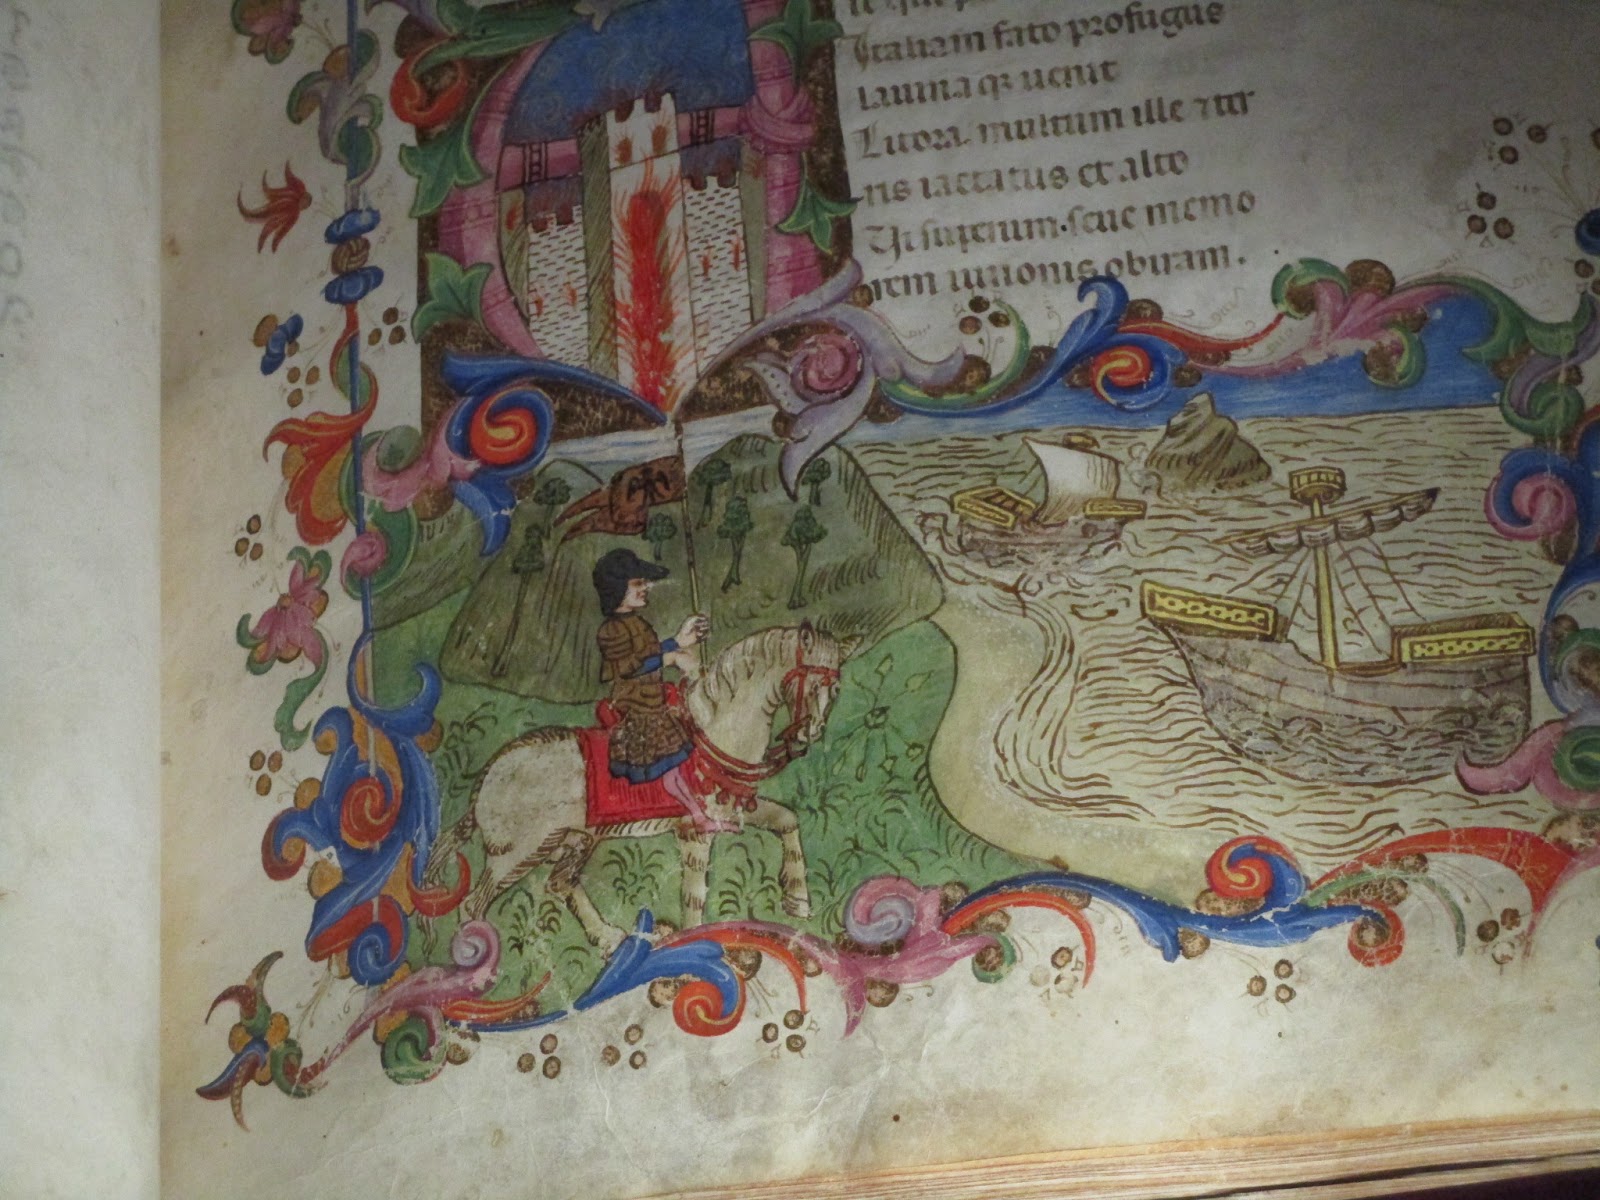 Italiam fato profugus
lauina qꝫ uenit
Litora. multum ille ⁊ ter
ris iactatus et alto
Vi superum. seue memo
rem iunonis obiram.